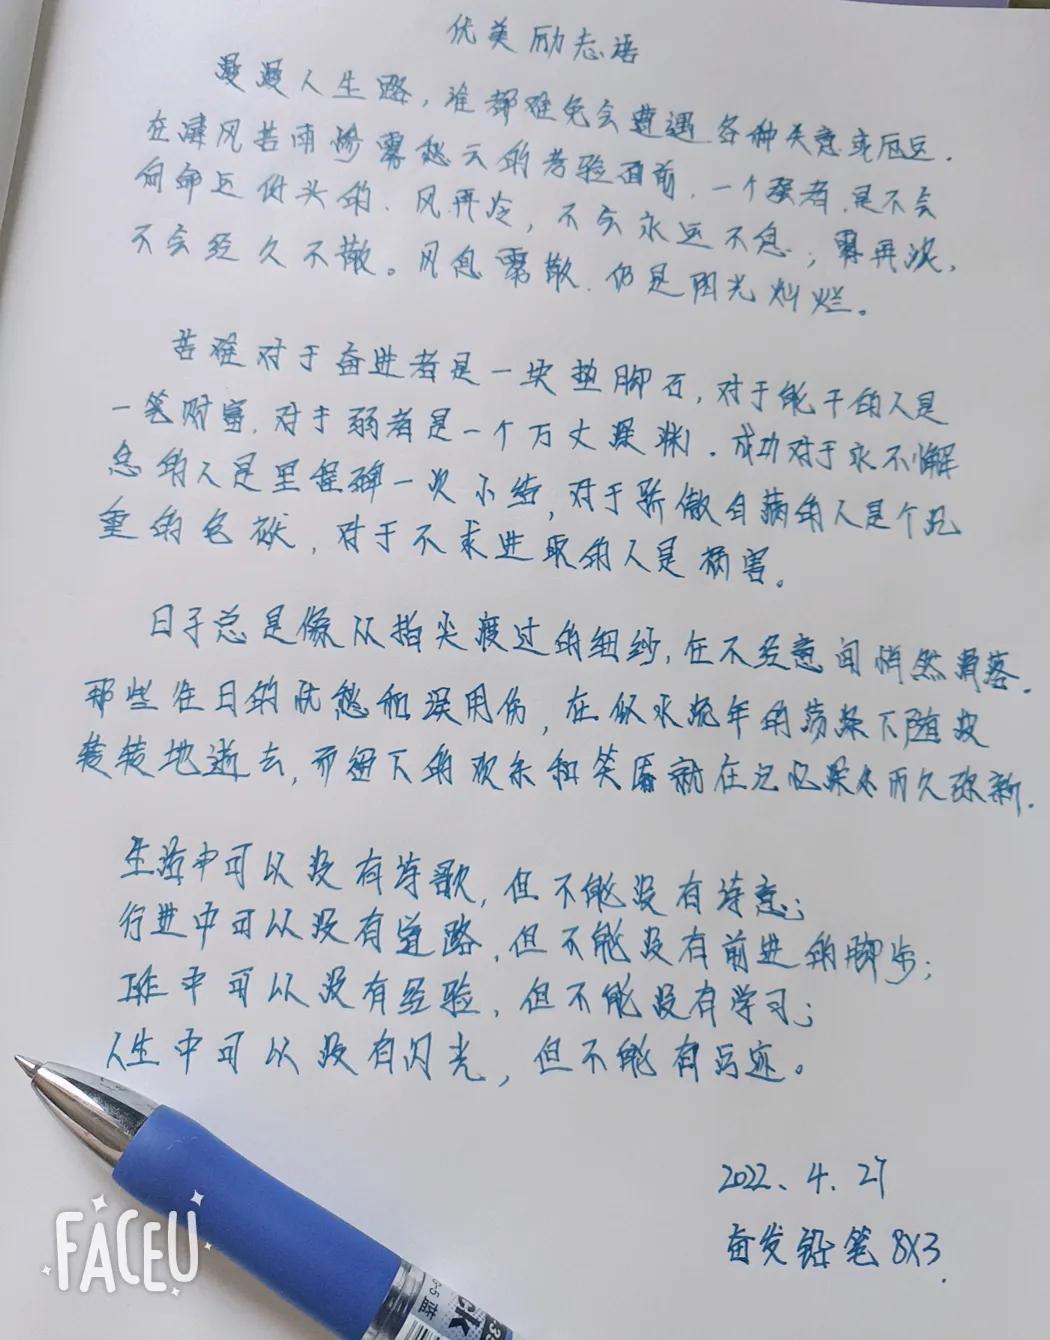 优美励志语
漫漫人生路，谁都难免会遭遇各种失意或厄运．
在凄风苦雨惨雾愁云的考验面前．一个强者．是不会
向命运低头的．风再冷，不会永远不息；雾再浓，
不会经久不散。风息雾散．仍是阳光灿烂。
苦难对于奋进者是一块垫脚石，对于能干的人是
一笔财富．对于弱者是一个万丈深渊．成功对于永不懈
怠的人是里程碑一次小结，对于骄傲自满的人是个沉
重的包袱，对于不求进取的人是祸害。
日子总是像从指尖渡过的细纱，在不经意间悄然滑落．
那些往日的忧愁和误用伤，在似水流年的荡涤下随波
轻轻地逝去，而留下的欢乐和笑靥就在记忆深处历久弥新．
生活中可以没有诗歌，但不能没有诗意；
行进中可以没有道路，但不能没有前进的脚步；
工作中可以没有经验，但不能没有学习；
人生中可以没有闪光，但不能有污迹。
2022、4、27
奋发铅笔8X3
FACEU
0-5 蓝
ck